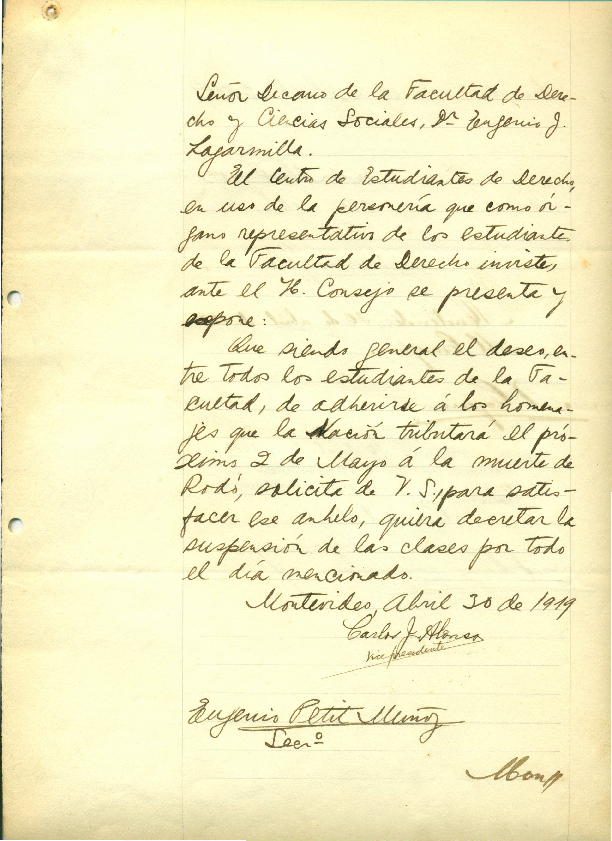 Señor Decano de la Facultad de Dere-
cho y Ciencias Sociales, Dr Eugenio J.
Lagarmilla.
El Centro de Estudiantes de Derecho,
en uso de la personería que como ór-
gano representativo de los estudiantes
de la Facultad de Derecho inviste,
ante el H. Consejo se presenta y
expone:
Que siendo general el deseo, en-
tre todos los estudiantes de la Fa-
cultad, de adherirse á los homena-
jes que la Nación tributará el pró-
ximo 2 de Mayo á la muerte de
Rodó, solicita de V. S., para satis-
facer ese anhelo, quiera decretar la
suspensión de las clases por todo
el día mencionado.
Montevideo, Abril 30 de 1919
Carlos J. Alonso
vice presidente
Eugenio Petit Muñoz
Secrº